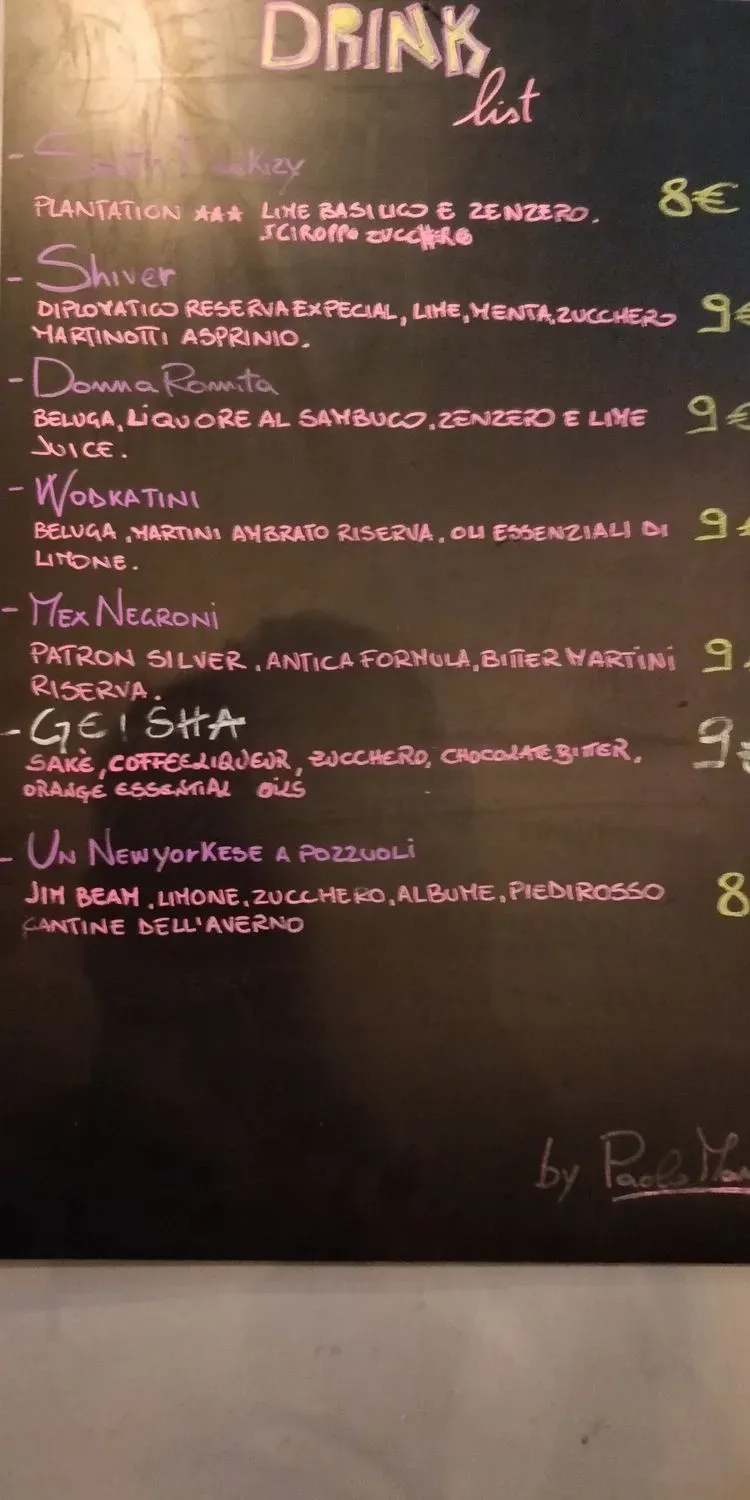 DRINK
list
- South
PLANTATION ★★★ LIME BASILICO E ZENZERO. 8€
SCIROPPO ZUCCHERO
- Shiver
DIPLOMATICO RESERVA EXPECIAL, LIME, MENTA, ZUCCHERO 9€
MARTINOTTI ASPRINIO.
- Donna Romita
BELUGA, LIQUORE AL SAMBUCO, ZENZERO E LIME 9€
JUICE.
- WODKATINI
BELUGA, MARTINI AMBRATO RISERVA, OLI ESSENZIALI DI 9
LIMONE.
- MEX NEGRONI
PATRON SILVER, ANTICA FORMULA, BITTER MARTINI 9
RISERVA.
- GEISHA
SAKÈ, COFFEE LIQUEUR, ZUCCHERO, CHOCOLATE BITTER, 9€
ORANGE ESSENTIAL OILS
- UN NEWYORKESE A POZZUOLI
JIM BEAM, LIMONE, ZUCCHERO, ALBUME, PIEDIROSSO 8
CANTINE DELL'AVERNO
by Paolo